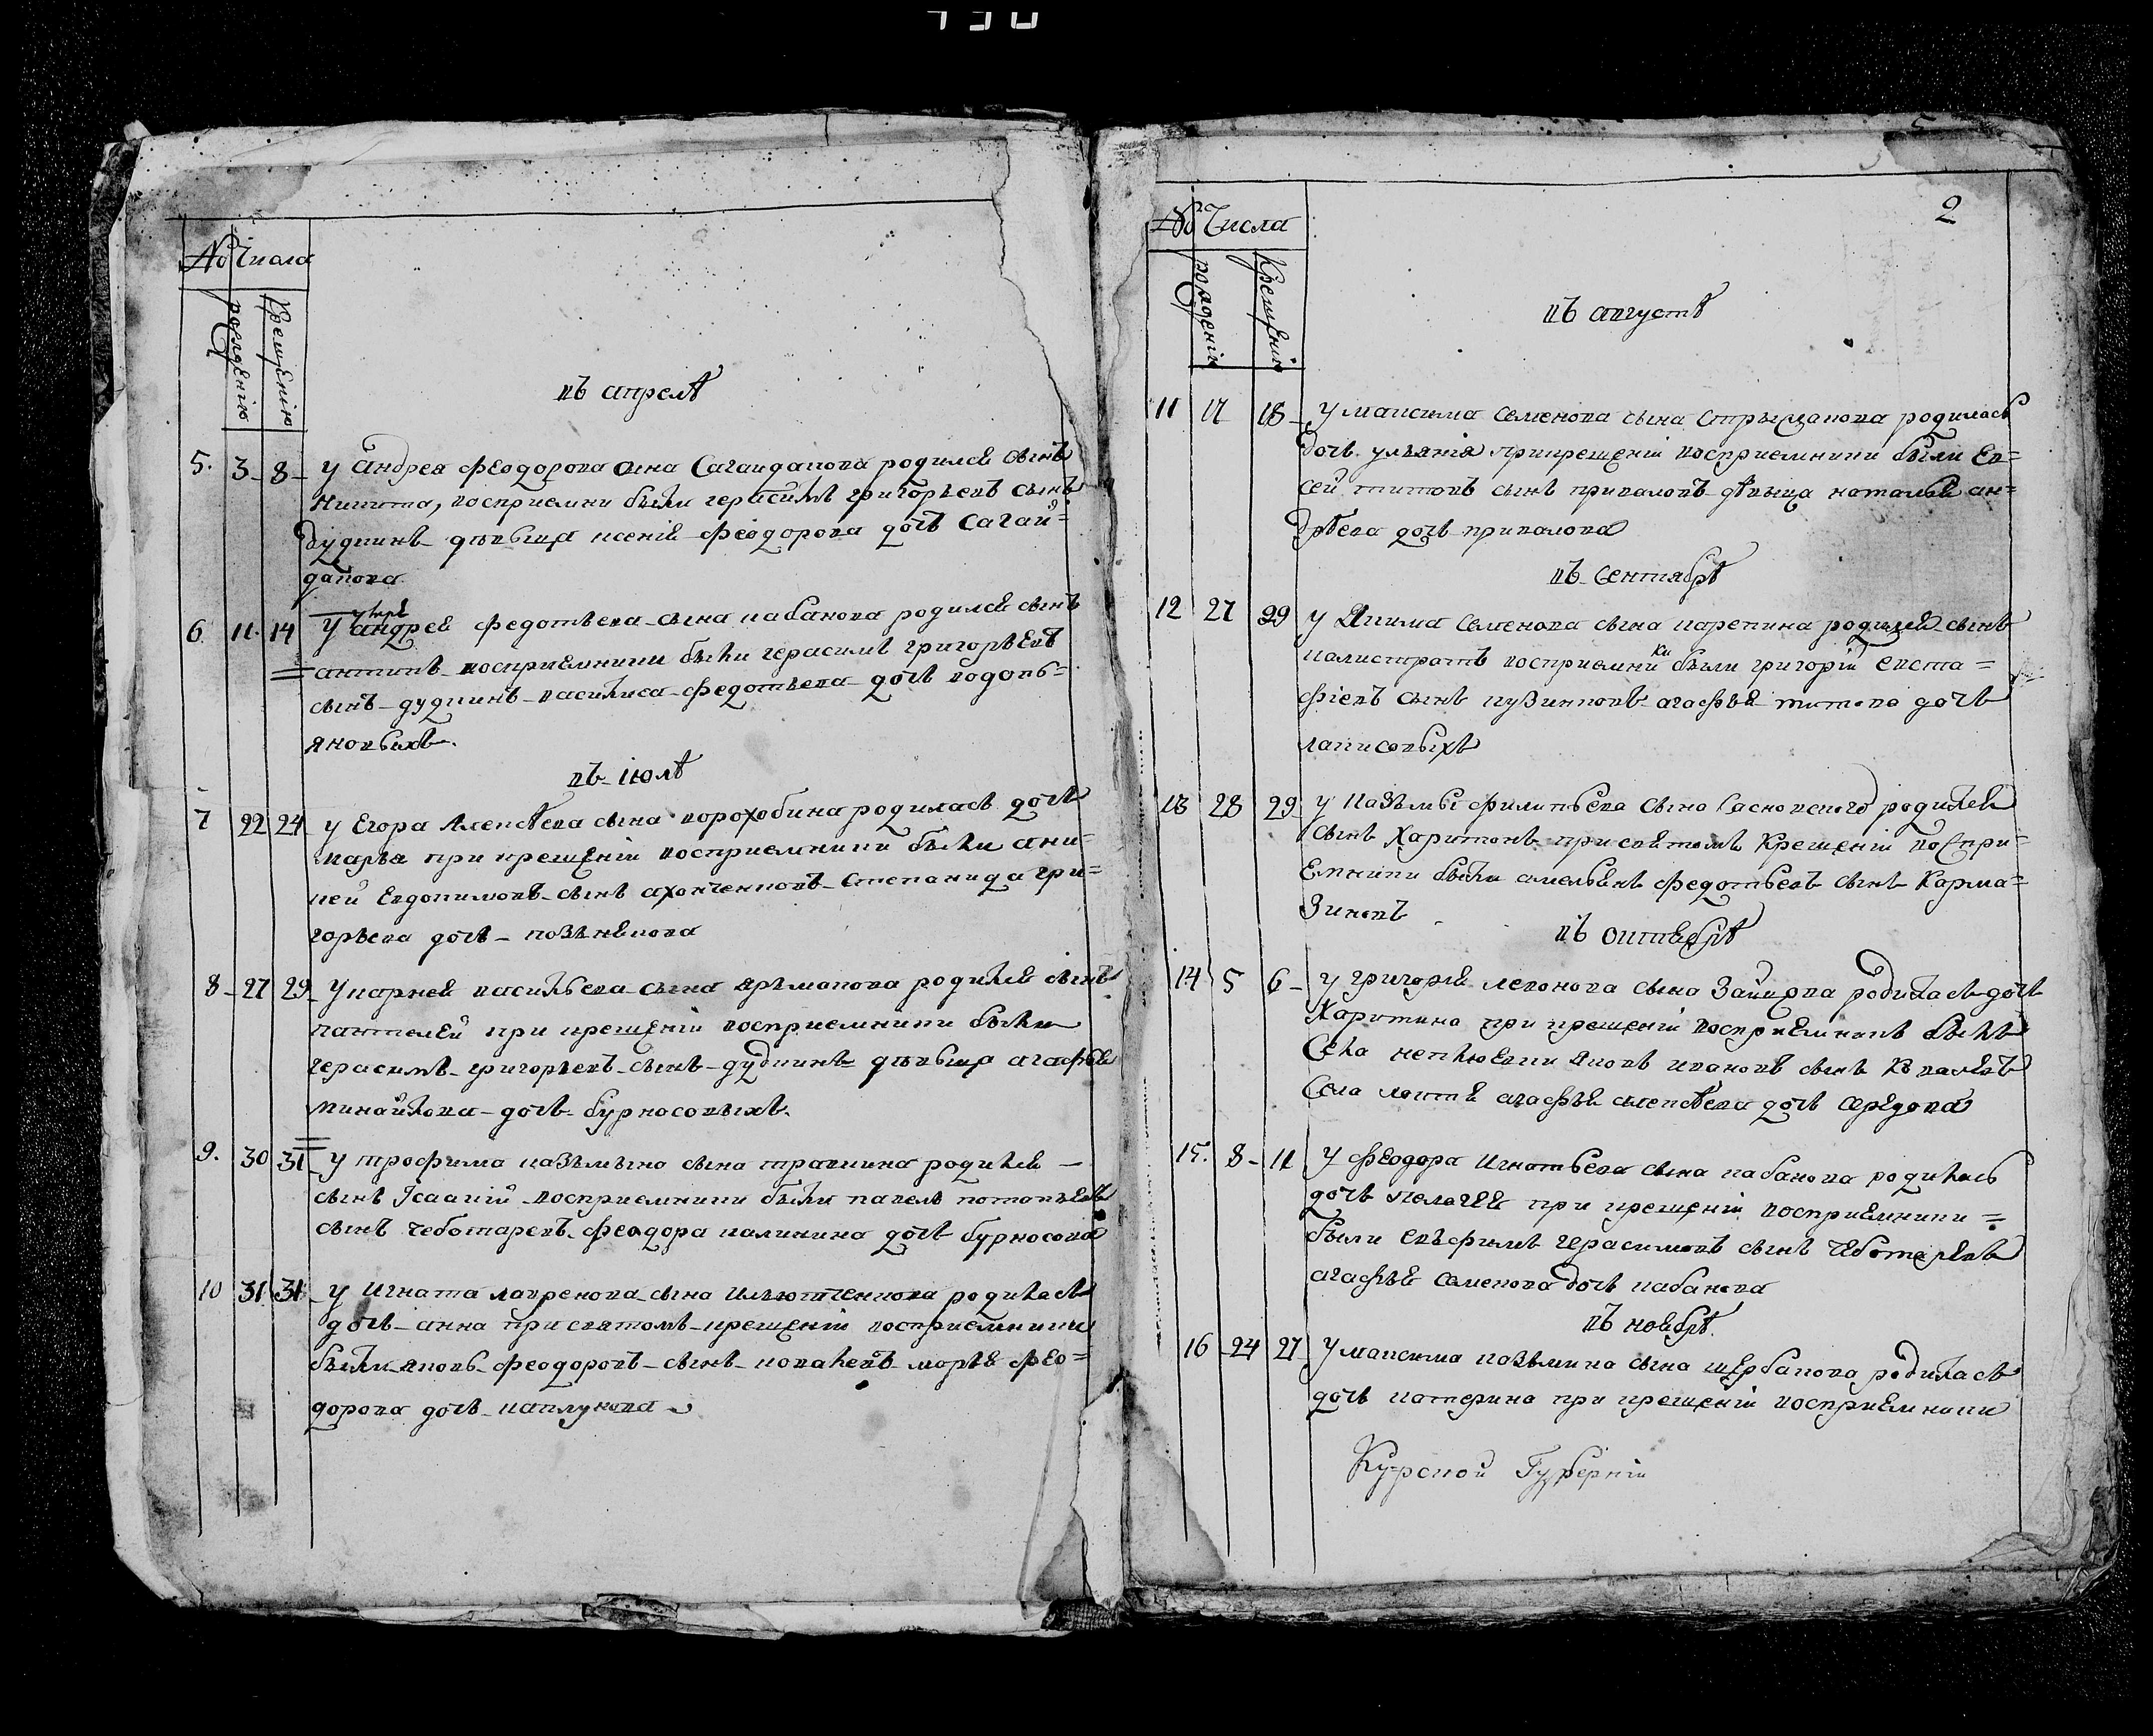 № Числа
рожденію
Крещенію
въ апрелѣ
5. 3 - 8 - у андрея феодорова сына Сагайдакова родился сынъ
Никита, восприемни были герасимъ григорьевъ сынъ
дудкинъ дѣвица ксенія феодорова дочь Сагай=
дакова
6 11. 14 у андрея федотьева сына кабанова родился сынъ
антипъ восприемники были герасимъ григорьевъ
сынъ дудкинъ василиса федотьева дочь водопь=
яновыхъ.
въ іюлѣ
7 22 24 у Егора Алексѣева сына ворохобина родилась дочь
марья при крещеніи восприемники были ани=
кей Евдокимовъ сынъ Степанида гри=
горьева дочь
8 - 27 29 у карнея васильева сына ярмакова родился сынъ
пантелей при крещеніи восприемники были
герасимъ григорьевъ сынъ дудкинъ дѣвица агафья
михайлова дочь бурносовыхъ.
9. 30 31 у трофима казьмина сына травкина родился
сынъ Ісаакій восприемники были павелъ потапьевъ
сынъ чеботаревъ феодора калинина дочь бурносова
10 31 31 у Игната лавренова сына родилась
дочь анна при святомъ крещеніи восприемники
были яковъ феодоровъ сынъ ковалевъ марья фео=
дорова дочь каплунова
2
№ Числа
рожденія
Крещенія
въ августѣ
11 17 18 - у максима семенова сына родилась
дочь ульянія при крещеніи восприемники были Ев=
сей титовъ сынъ приваловъ дѣвица наталья ан=
дрѣева дочь привалова
въ Сентябрѣ
12 27 29 у Якима семенова сына карепина родился сынъ
калистратъ восприемники были григорій евста=
фіевъ сынъ агафья титова дочь
лаписовыхъ
13 28 29 у Казьмы филипьева сына Сасновского родился
сынъ Харитонъ при святомъ Крещеніи воспри=
емники были емельянъ федотьевъ сынъ Карма=
зиновъ
въ октябрѣ
14 5 6 - у григорія леонова сына Зайцова родилась дочь
Харитина при крещеніи восприемникъ былъ
Села яковъ ивановъ сынъ Ковалевъ
Села агафья алексѣева дочь середова
15. 8 - 11 у феодора Игнатьева сына кабанова родилась
дочь пелагея при крещеніи восприемники =
были евфимъ герасимовъ сынъ чеботаревъ
агафья семенова дочь кабанова
въ ноябрѣ.
16 - 24 27 у максима казьмина сына щербакова родилась
дочь катерина при крещеніи восприемники
Курской Губерніи